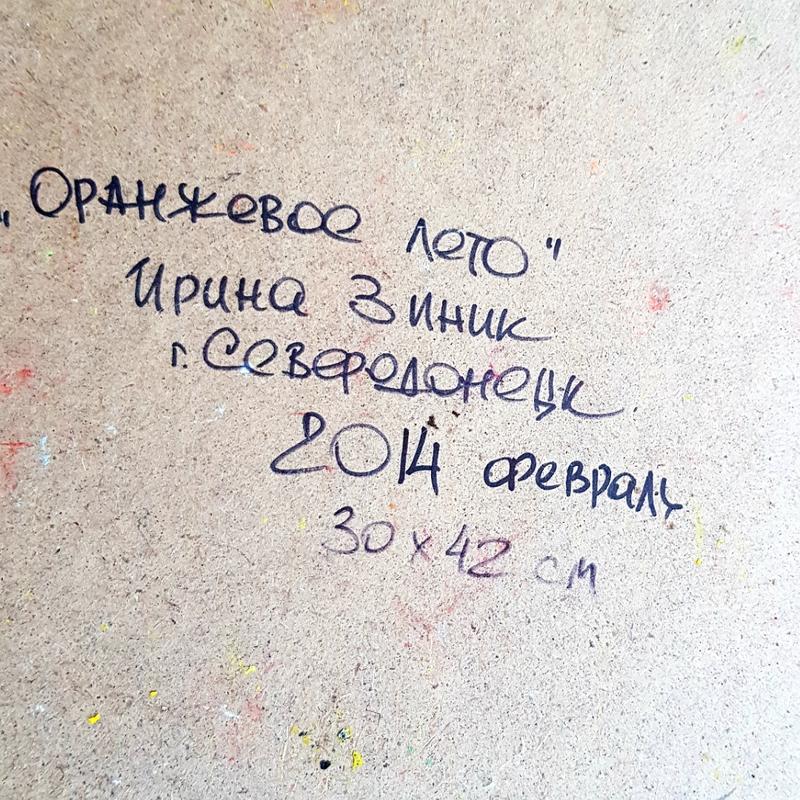 „Оранжевое лето"
Ирина Зиник
г. Северодонецк
2014 февраль
30 х 42 см